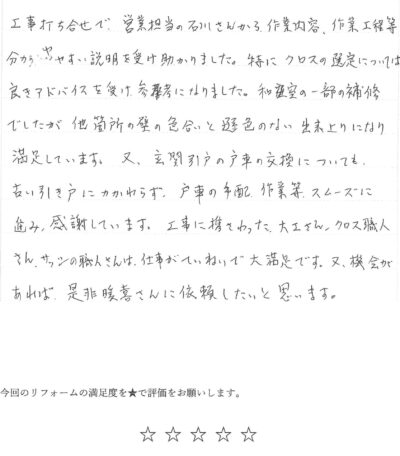 工事打ち合せで、営業担当の石川さんから、作業内容、作業工程等
分かりやすい説明を受け助かりました。特に クロスの選定については
良きアドバイスを受け、参考になりました。和室の一部の補修
でしたが 他箇所の壁の色合いと遜色のない出来上りになり
満足しています。又、玄関引戸の戸車の交換についても、
古い引き戸にかかわらず、戸車の手配、作業等、スムーズに
進み、感謝しています。工事に携さわった、大工さん、クロス職人
さん、サッシの職人さんは、仕事がていねいで大満足です。又、機会が
あれば、是非暖喜さんに依頼したいと思います。
今回のリフォームの満足度を★で評価をお願いします。
☆ ☆ ☆ ☆ ☆